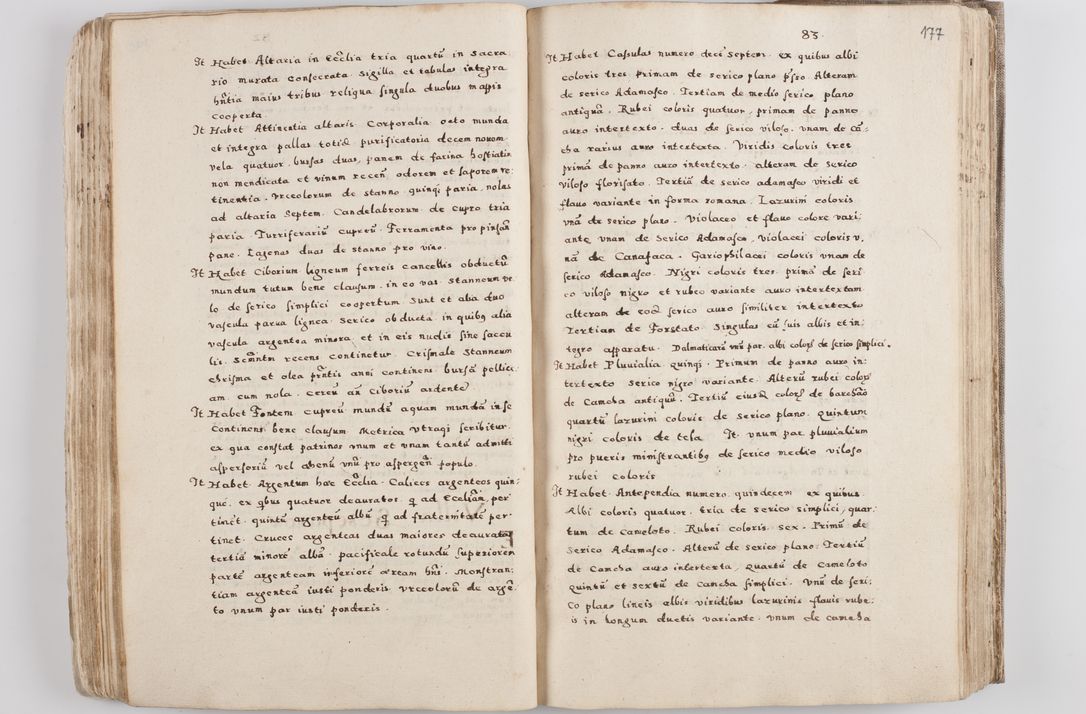 It Habet Altaria in Eccłia tria quartũ in Sacra
rio murata consecrata. Sigilla et tabulas integra
hñtia maius tribus reliqua singula duobus mappis
cooperta.
It Habet Attinentia altaris Corporalia octo munda
et integra pallas totidẽ purificatoria decem novem
vela quatuor, bursas duas, panem de farina hostiatim
non mendicata et vinum recẽn odorem et saporem re:
tinentia. Vrceolorum de stanno quinq; paria, nolas
ad altaria Septem. Candelabrorum de cupro tria
paria Turriferariũ cupreũ. Ferramenta pro pinsãn
pane. Lagenas duas de stanno pro vino.
It Habet Ciborium ligneum ferreis cancellis obductũ
mundum tutum bene clausum. in eo vas stanneum ve
lo de serico simplici coopertum Sunt et alia duo
vascula parva lignea Serico obducta in quibꝫ alia
vascula argentea minora, et in eis nudis sine saccu
lis. Scm̃ntm recens continetur Crismale Stanneum
chrisma et olea pr̃ntis anni continens bursã pellice
am cum nola. Cereũ añ Ciboriũ ardente.
It Habet Fontem cupreũ mundũ aquam mundã in se
Continens bene clausum. Metrica vtraq; scribitur
ex qua constat patrinos vnum et vnam tantũ admitti
aspersoriũ vel ahenũ vnũ pro aspergeñ populo.
It Habet Argentum hæc Eccłia. Calices argenteos quin:
que, ex q̃bus quatuor deauratos, q̃ ad Ecclĩan per
tinet quintũ argenteũ albũ q̃ ad fraternitatẽ per:
tinet. Cruces argenteas duas maiores deauratas
tertiã minorẽ albã. pacificale rotundũ superiorem
partẽ argenteam inferiorẽ æream hñs. Monstran:
tiam argenteã iusti ponderis. Vrceolorũ de argẽ
to vnum par iusti ponderis.
83.
177
It Habet Casulas numero decẽ septem. ex quibus albi
coloris tres primam de serico plano Alteram
de serico Adamasco. Tertiam de medio serico plano
antiquã. Rubei coloris quatuor, primam de panno
auro intertexto. duas de serico viloso. vnam de cã:
cha rarius auro intertexta. Viridis coloris tres
primã de panno auro intertexto. alteram de serico
viloso florisato. Tertiã de serico adamasco viridi et
flavo variante in forma romana. Lazurini coloris
vnã de serico plano. Violaceo et flavo colore vari:
ante vnam de Serico Adamasco, violacei coloris v,
nã de Canafaca. Gariophilacei coloris vnam de
serico Adamasco. Nigri coloris tres primã de seri
co viloso nigro et rubeo variante auro intertextam
alteram de eodẽ serico auro similiter intertexto
Tertiam de Forstato. Singulas cũ suis albis et in:
tegro apparatu. Dalmaticarũ vnũ par. albi colorꝫ de serico simplici.
It Habet Pluvialia quinq;. Primum de panno auro in:
tertexto Serico nigro variante. Alterũ rubei colorꝫ
de Camcha antiquũ. Tertiũ eiusdẽ colorꝫ de
quartũ lazurini coloris de serico plano. Quintum
nigri coloris de tela It. vnum par pluvialium
pro pueris ministrantibꝫ de serico medio viloso
rubei coloris
It Habet Antependia numero quindecem ex quibus
Albi coloris quatuor. tria de serico simplici, quar,
tum de cameloto. Rubei coloris sex. Primũ de
Serico Adamasco. Alterũ de serico plano. Tertiũ
de Camcha auro intertexta, Quartũ de cameloto
Quintũ et sextũ de Camcha simplici. Vnũ de seri:
co plano lineis albis viridibus lazurinis flavis rube:
is in longum ductis variante. vnum de camcha